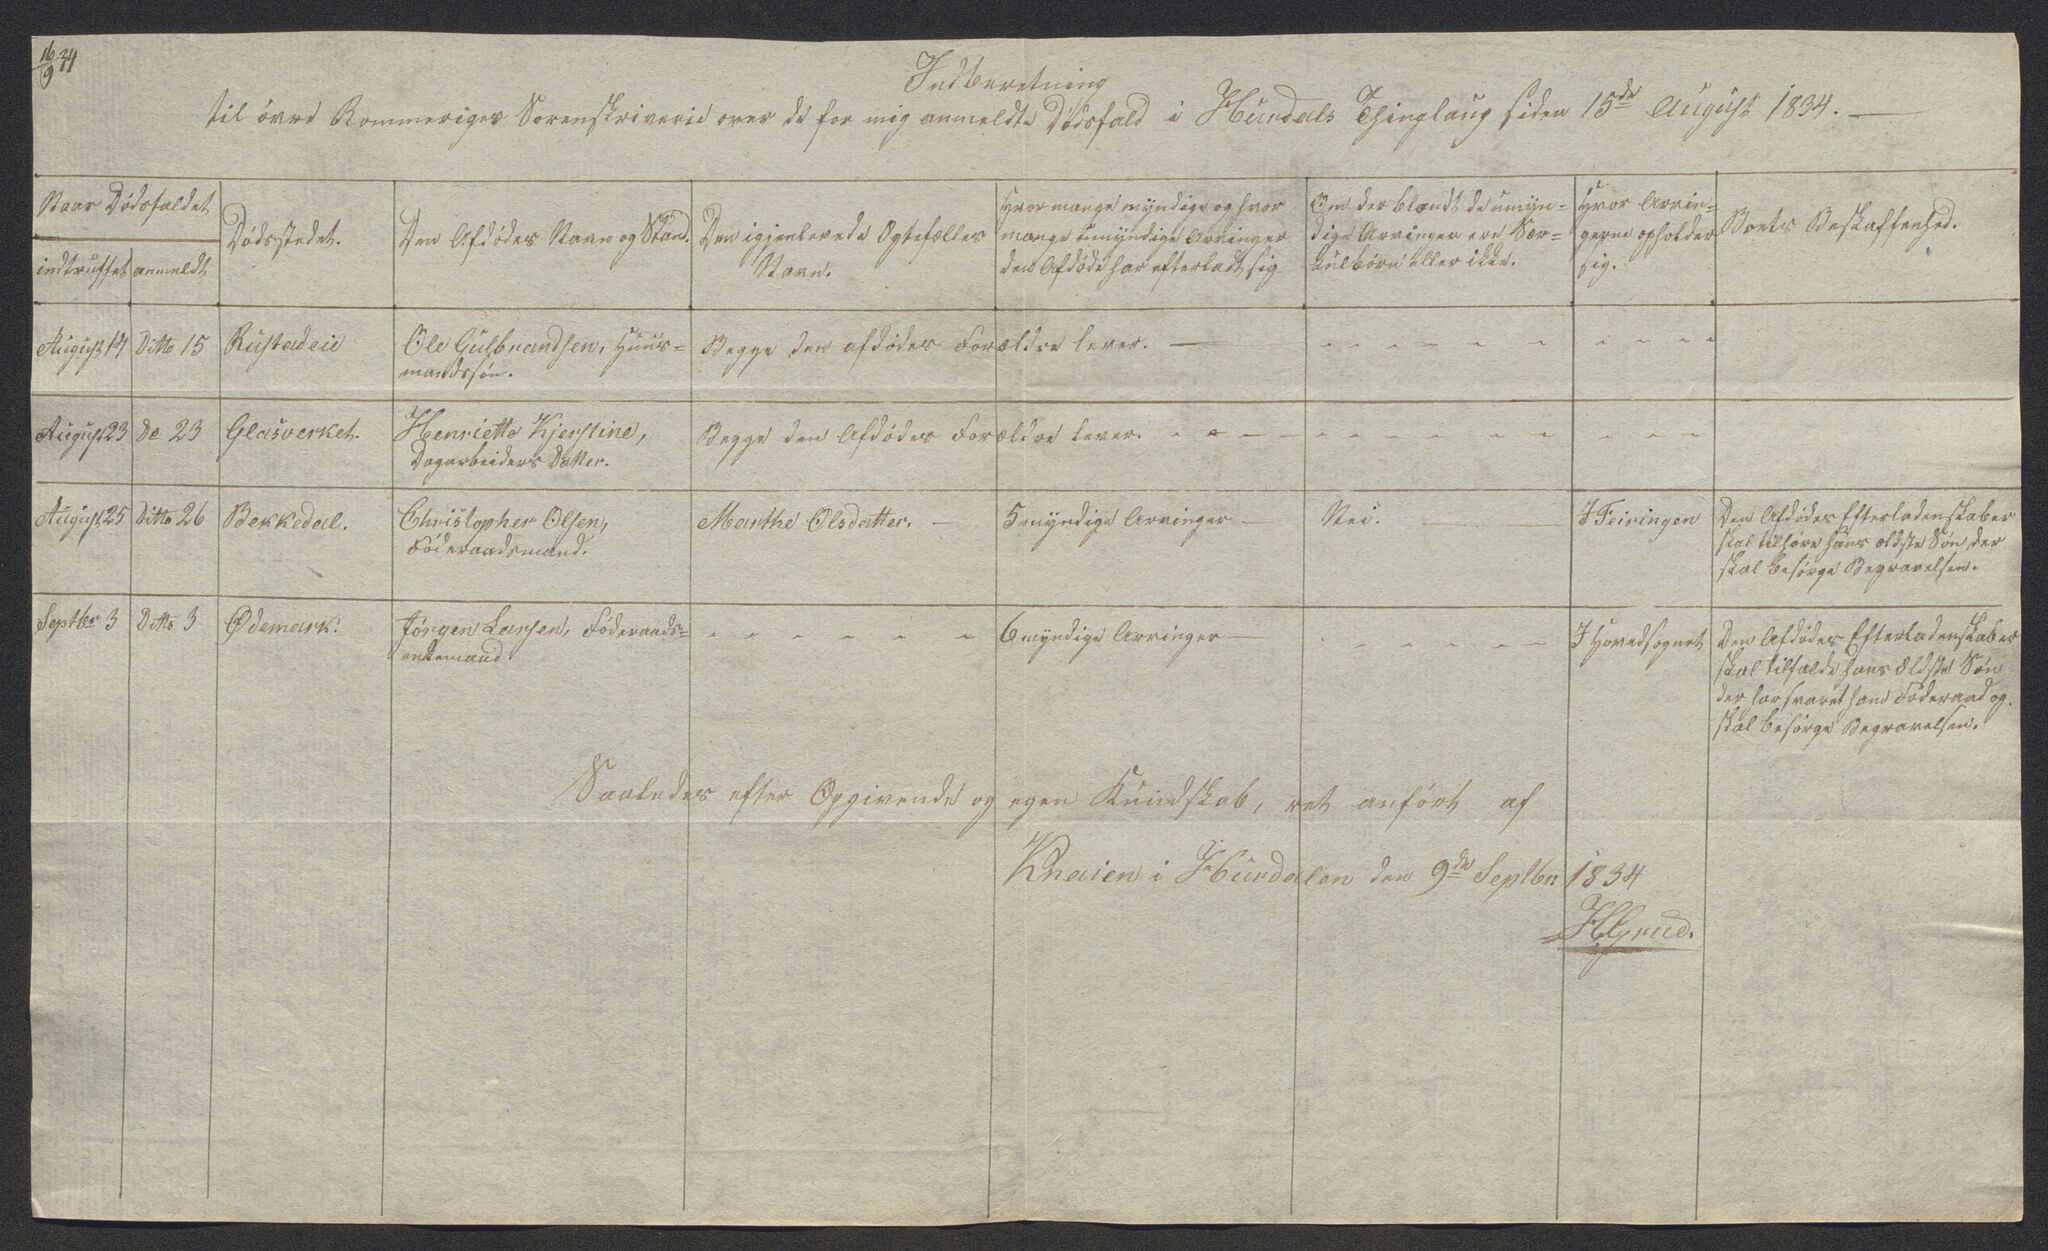 16/9 34
Indberetning
til övre Rommeriges Sorenskriverie over de for mig anmeldte Dödsfald i Hurdals Thinglaug siden 15de August 1834.
Naar Dödsfaldet
indtruffet
anmeldt
Dödsstedet.
Den Afdödes Navn og Stand.
Den igjenlevende Ægtefælles
Navn.
Hvor mange myndige og hvor
mange umyndige Arvinger
den Afdöde har efterladt sig
Om der blandt de umyn-
dige Arvinger ere Sær-
kulbörn eller ikke.
Hvor Arvin-
gerne opholder
sig.
Boets Beskaffenhed.
August 14 Ditto 15 Rustadeie Ole Gulbrandsen, Huus-
mandssön.
Begge den afdödes Forældre lever.
August 23 Do 23 Glasverket. Henriette Kjerstine,
Dagarbeiders Datter.
Begge den Afdödes Forældre lever.
August 25 Ditto 26 Bekkedal. Christopher Olsen,
Föderaadsmand.
Marthe Olsdatter. 5 myndige Arvinger Nei. I Feiringen
Den Afdödes Efterladenskaber
skal tilhöre hans ældste Sön der
skal besörge Begravelsen.
Septbr 3 Ditto 3 Ødemark. Jörgen Larsen, Föderaads-
enkemand.
6 myndige Arvinger I Hovedsognet
Den Afdödes Efterladenskaber
skal tilfalde hans Ældste Sön
der har svaret ham Föderaad og
skal besörge Begravelsen.
Saaledes efter Opgivende og egen Kundskab, ret anfört af
Knaien i Hurdalen den 9de Septbr 1834